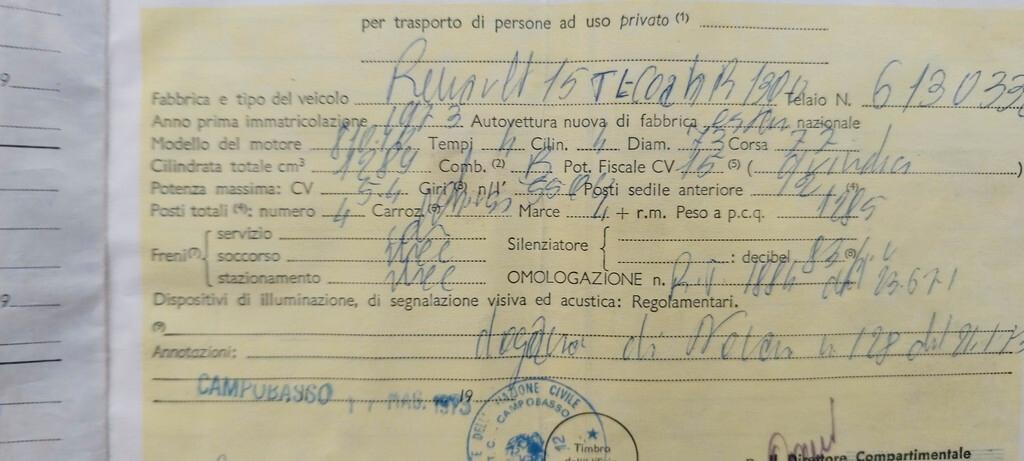 per trasporto di persone ad uso privato (1)
Fabbrica e tipo del veicolo Renault 15 TL Coupè R 1300 Telaio N. 613033
Anno prima immatricolazione 1973 Autovettura nuova di fabbrica nazionale
Modello del motore 810. Tempi 4 Cilin. 4 Diam. 73 Corsa 77
Cilindrata totale cm³ 1289 Comb. (2) B Pot. Fiscale CV 15 (5) ( quindici )
Potenza massima: CV 54 Giri n/1' 5500 Posti sedile anteriore (4)
Posti totali (4): numero 4 Carroz. Marce 4 + r.m. Peso a p.c.q. 1285
Freni (7) servizio
soccorso mec
stazionamento mec
Silenziatore : decibel 83 (8)
OMOLOGAZIONE n. 1884 del 23.6.71
Dispositivi di illuminazione, di segnalazione visiva ed acustica: Regolamentari.
(9)
Annotazioni: dogana di n 128 del
CAMPOBASSO 17 MAG. 1973 19
CAMPOBASSO
Timbro
Il Direttore Compartimentale